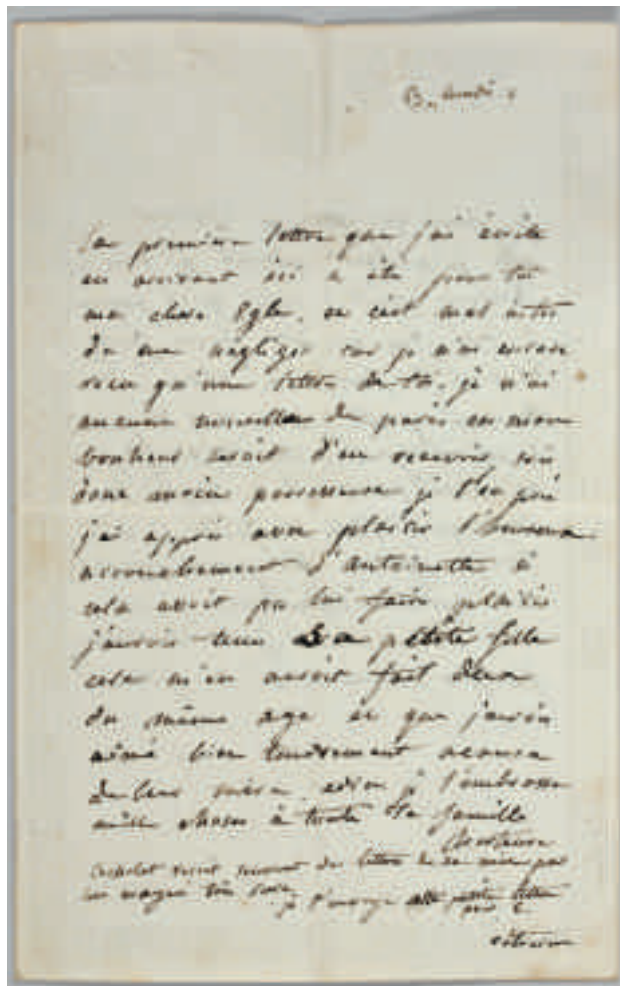 lundi
la première lettre que j'ai écrite
en arrivant ici a été pour toi
ma chère Eglé, c'est mal
de me négliger car je n'ai encore
recu qu'une lettre de toi, je n'ai
aucune nouvelle de paris et mon
bonheur serait d'en recevoir sois
donc moins paresseuse je t'en prie
j'ai appris avec plaisir l'heureux
accouchement d'Antoinette si
cela avoit pu lui faire plaisir
j'aurois tenu sa petite fille
cela m'en auroit fait deux
du même age et que j'aurois
aimé bien tendrement acause
de leur mère adieu je t'embrasse
mille choses à toute ta famille
Hortense
reçoit souvent des lettres de sa mère par
je t'envoye cette petite lettre